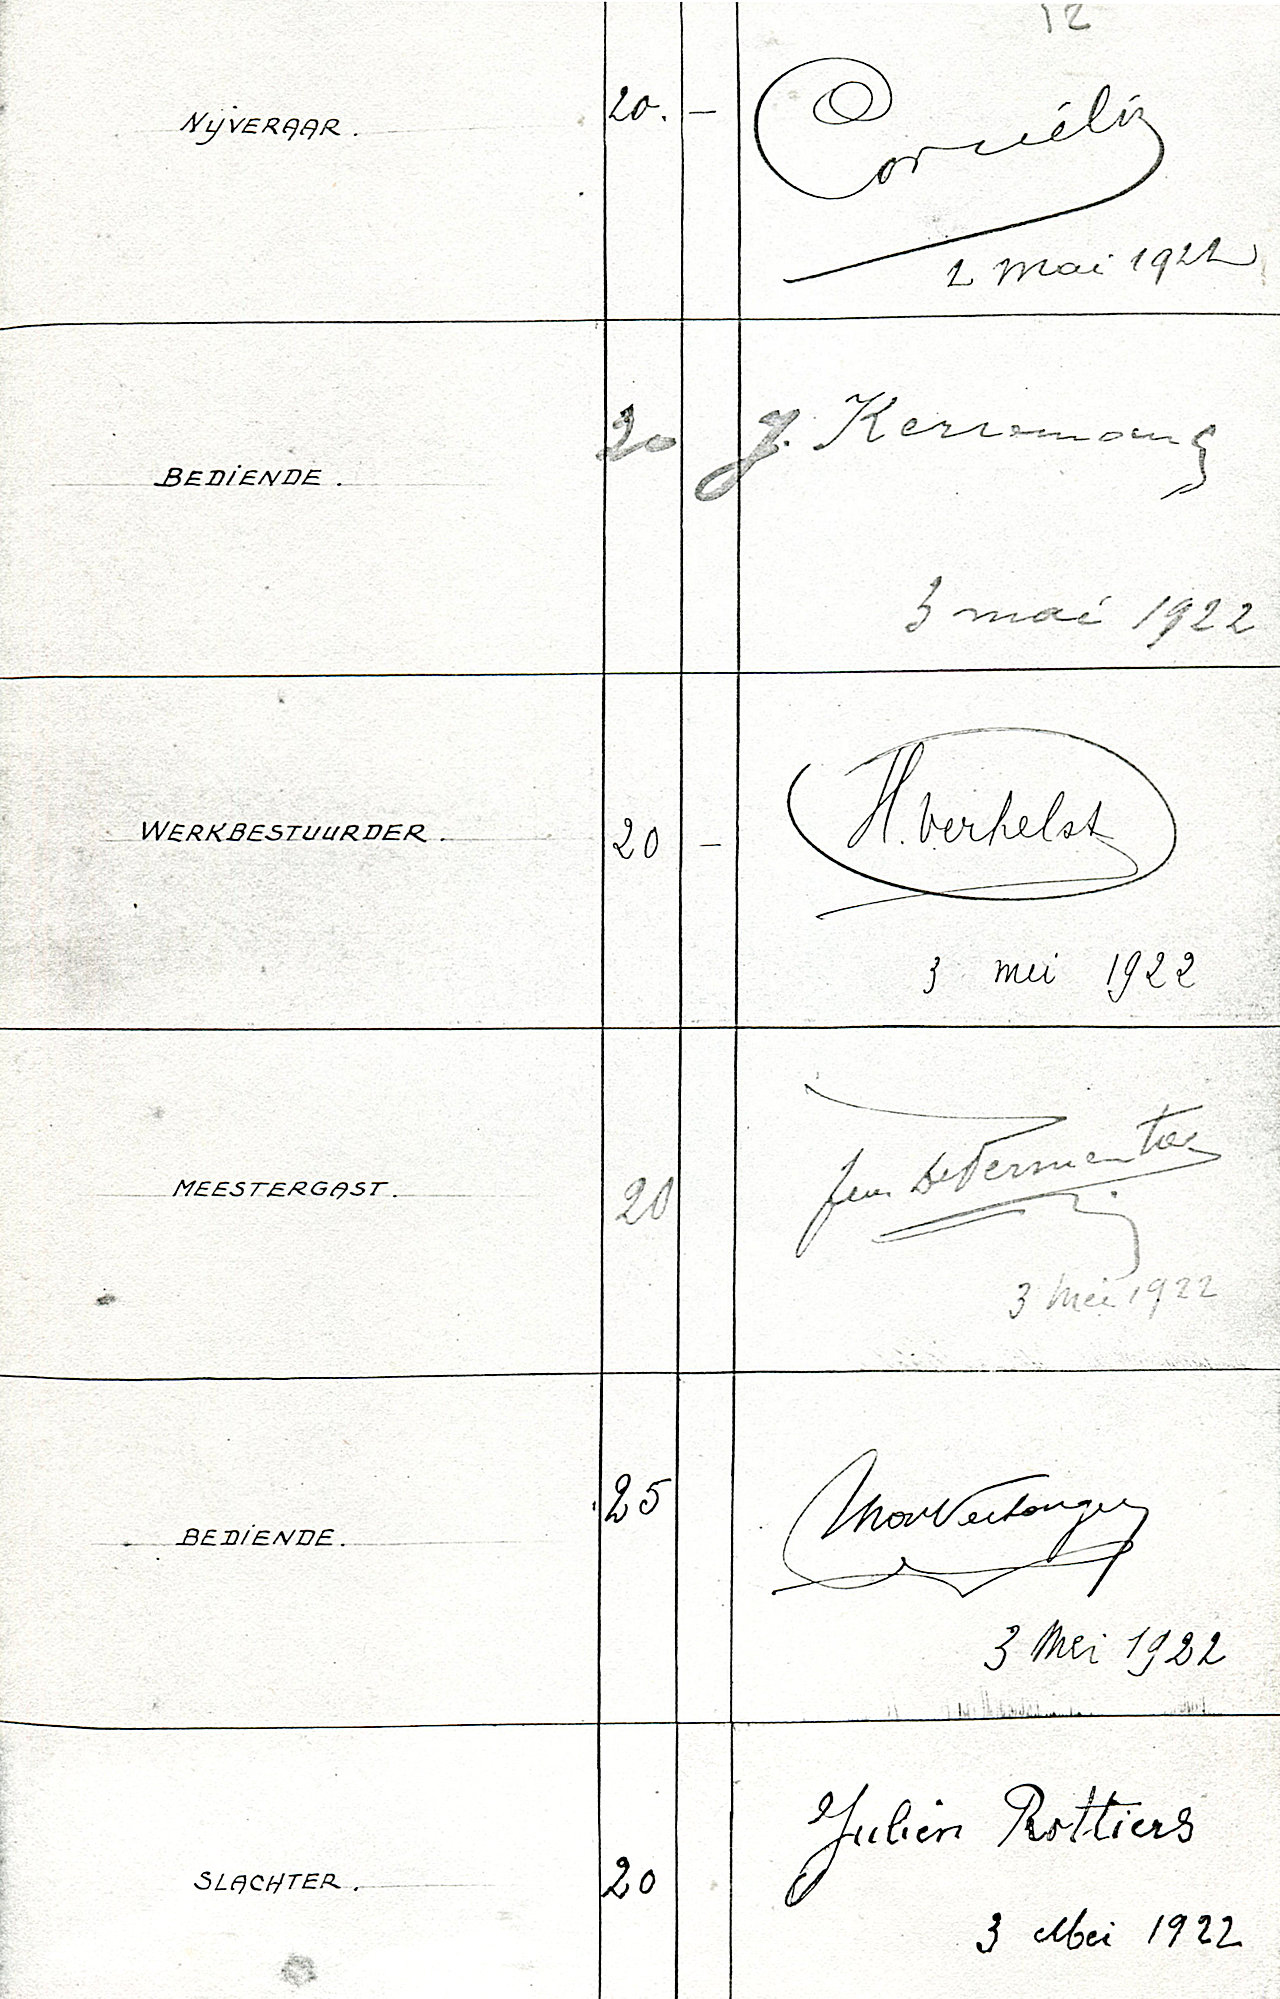 12
NIJVERAAR. 20. —
Cornélis
2 Mai 1922
BEDIENDE. 20 J. Kerremans
3 mai 1922
WERKBESTUURDER. 20 — H. Verhelst
3 mei 1922
MEESTERGAST. 20
3 Mei 1922
BEDIENDE. 25
3 Mei 1922
SLACHTER. 20 Julien Rottiers
3 Mei 1922